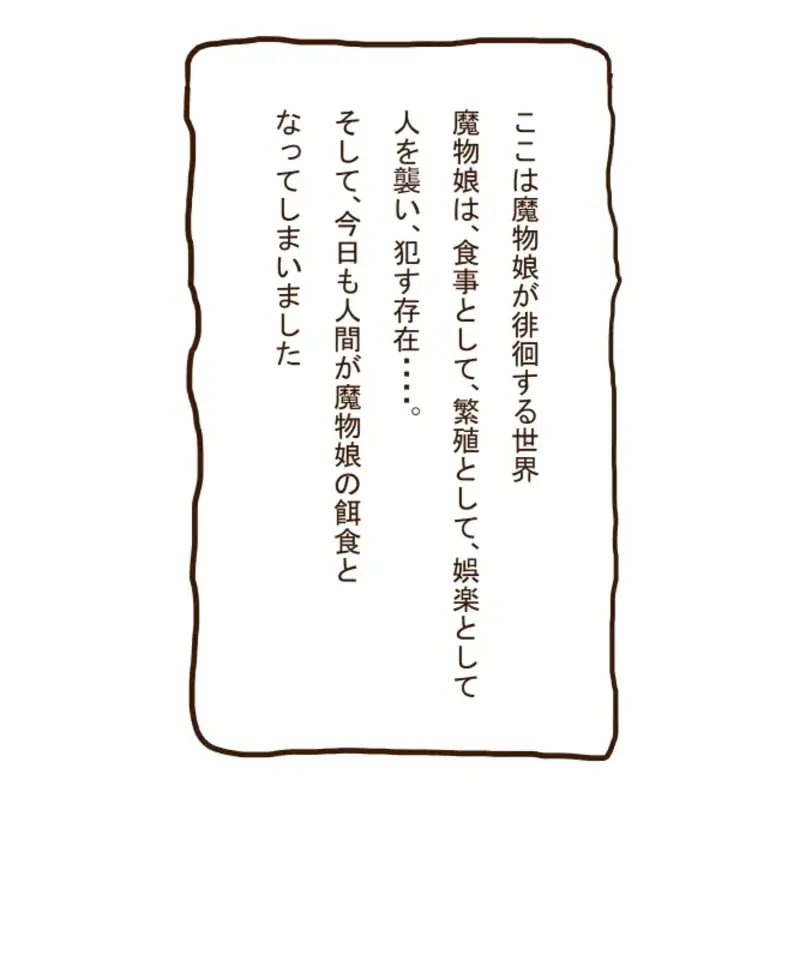 ここは魔物娘が徘徊する世界
魔物娘は、食事として、繁殖として、娯楽として
人を襲い、犯す存在・・・・。
そして、今日も人間が魔物娘の餌食と
なってしまいました